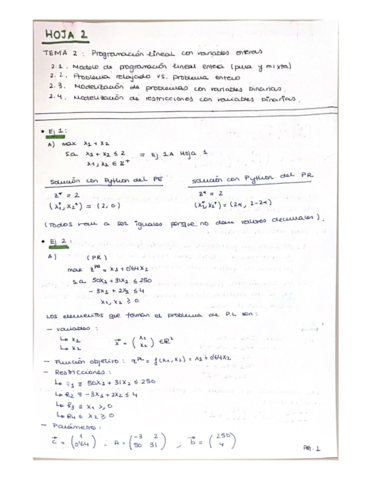 HOJA 2
TEMA 2: Programación lineal con variables enteras
2.1. Modelo de programación lineal entera (pura y mixta)
2.2. Problema relajado vs. problema entero
2.3. Modelización de problemas con variables binarias.
2.4. Modelización de restricciones con variables binarias.
• Ej 1:
A) max x1 + x2
s.a. x1 + x2 ≤ 2 = Ej 1A Hoja 1
x1, x2 ∈ Z+
Solución con Python del PE Solución con Python del PR
z* = 2 z* = 2
(x1*, x2*) = (2, 0) (x1*, x2*) = (2α, 2-2α)
(Todos van a ser iguales porque no dan valores decimales).
• Ej 2:
A) (PR)
max z^PR = x1 + 0'64x2
s.a. 50x1 + 31x2 ≤ 250
-3x1 + 2x2 ≤ 4
x1, x2 ≥ 0
Los elementos que forman el problema de P.L son:
- Variables:
↳ x1
↳ x2 x = (x1 x2) ∈ R²
- Función objetivo: z^PR = f(x1, x2) = x1 + 0'64x2
- Restricciones:
↳ R1 ≡ 50x1 + 31x2 ≤ 250
↳ R2 ≡ -3x1 + 2x2 ≤ 4
↳ R3 ≡ x1 ≥ 0
↳ R4 ≡ x2 ≥ 0
- Parámetros:
c = (1 0'64) ; A = (-3 2 50 31) ; b = (250 4)